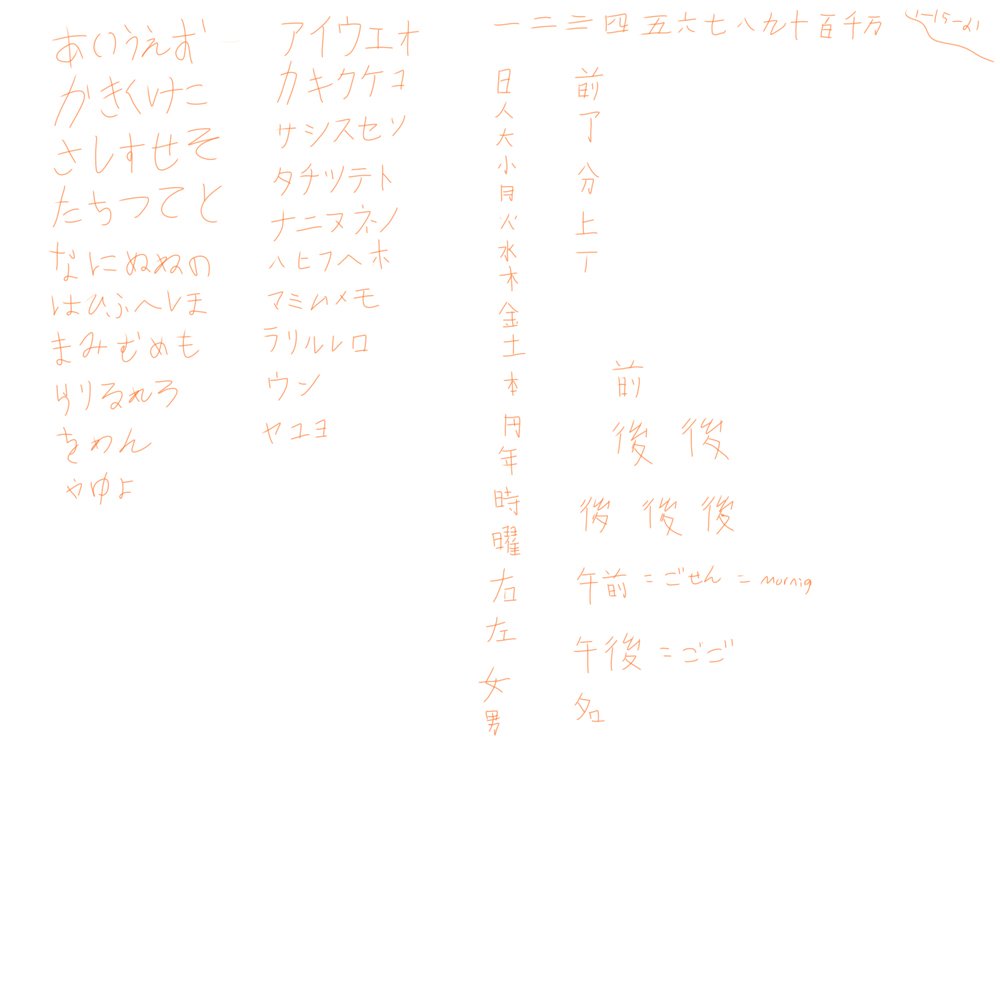 あいうえお
かきくけこ
さしすせそ
たちつてと
なにぬねの
はひふへほ
まみむめも
らりるれろ
をわん
やゆよ
アイウエオ
カキクケコ
サシスセソ
タチツテト
ナニヌネノ
ハヒフヘホ
マミムメモ
ラリルレロ
ウン
ヤユヨ
一二三四五六七八九十百千万
1-15-21
日
人
大
小
月
火
水
木
金
土
本
円
年
時
曜
右
左
女
男
前
了
分
上
丅
前
後 後
後 後 後
午前 = ごせん = mornig
午後 = ごご
名